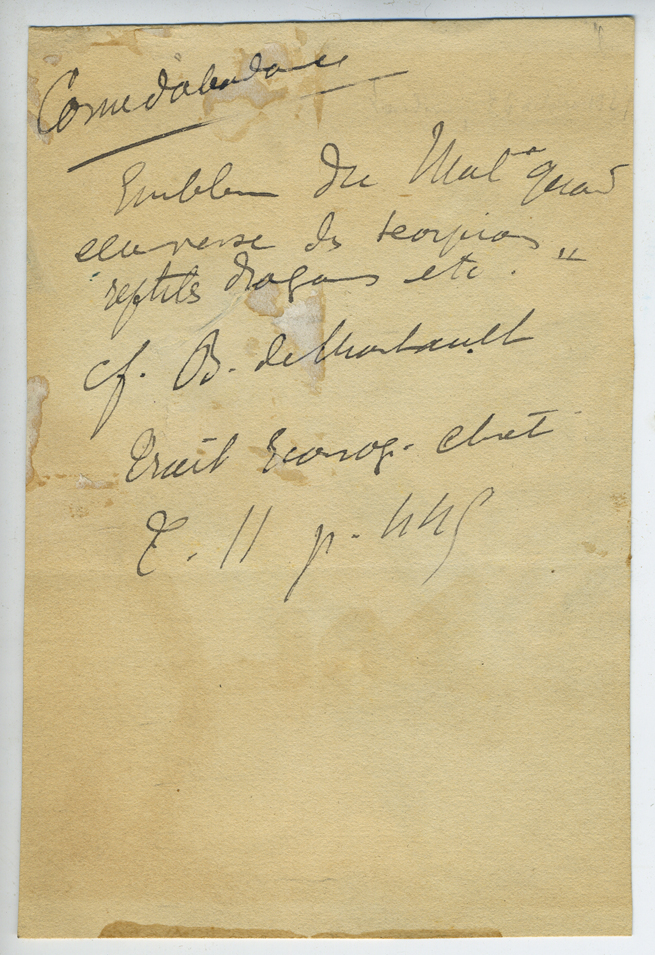 Corne dabondance
Emblem du Mal "quand
elle verse des scorpions
reptiles dragons etc. "
cf. B. de Montault
Trait Iconog. chret
T. II p. 445